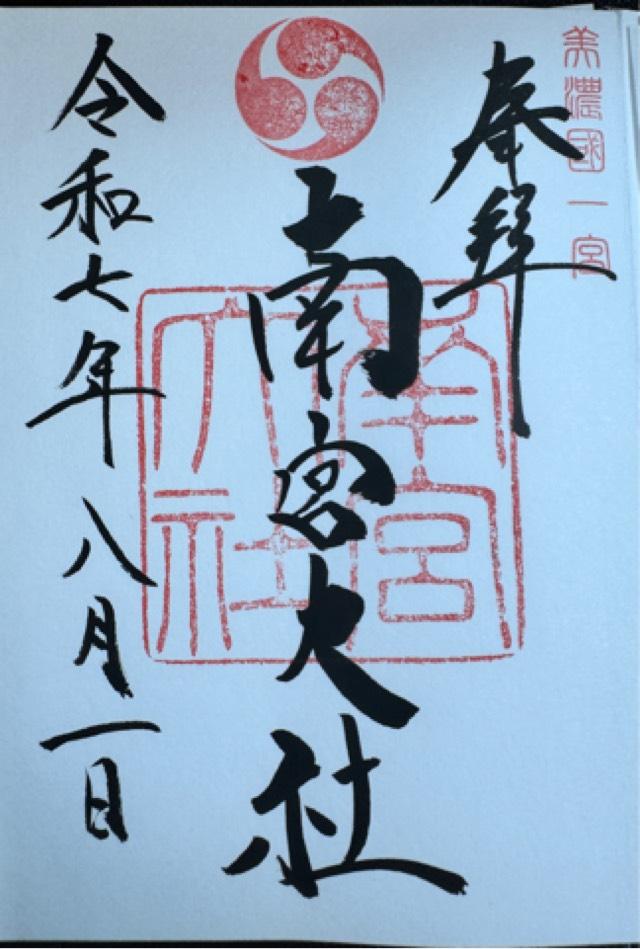 美濃國一宮
奉拜
南宮大社
南宮大社
令和七年八月一日